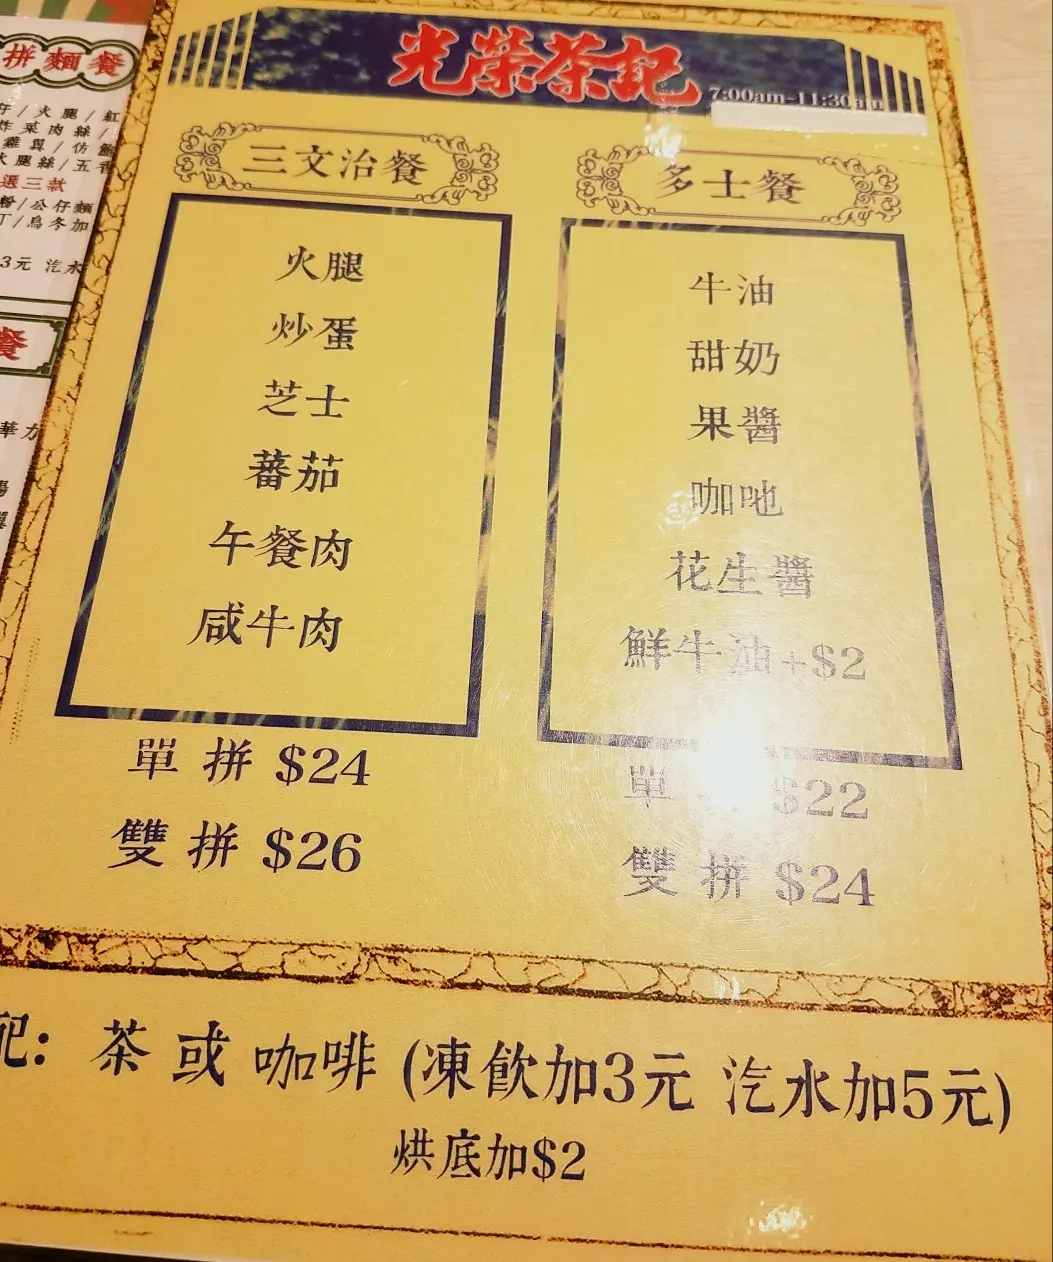 拼麵餐
火腿/紅
炸菜肉絲/
雞翼/仿
火腿絲/五香
選三款
粉/公仔麵
丁/烏冬加
3元 汽水
餐
華力
光榮茶記
7:00am-11:30am
三文治餐
火腿
炒蛋
芝士
蕃茄
午餐肉
咸牛肉
單拼 $24
雙拼 $26
多士餐
牛油
甜奶
果醬
咖吔
花生醬
鮮牛油+$2
單 $22
雙拼 $24
配: 茶 或 咖啡 (凍飲加3元 汽水加5元)
烘底加$2